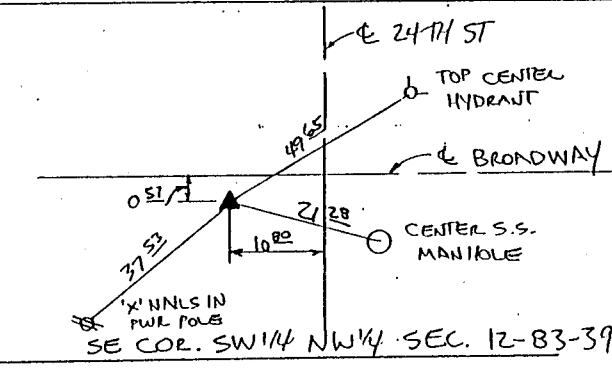 ℄ 24TH ST
TOP CENTER
HYDRANT
49 65
℄ BROADWAY
0 57
21 28
10 80
CENTER S.S.
MANHOLE
37 53
'X' NAILS IN
PWR POLE
SE COR. SW 1/4 NW 1/4 SEC. 12-83-39